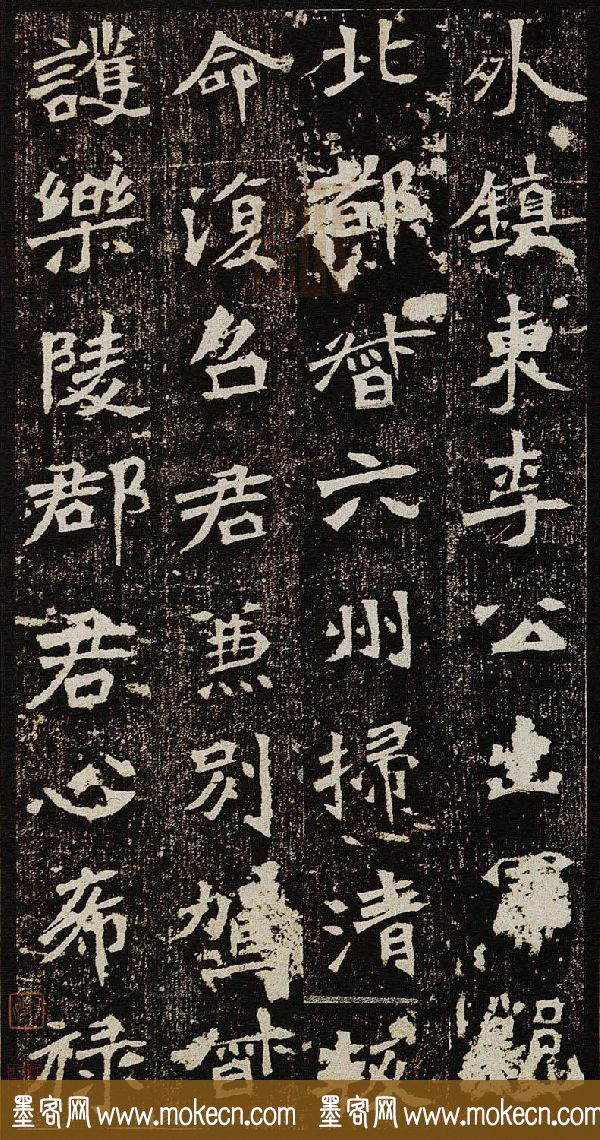 外鎮東李公出軍
北都督六州掃清
命復召君兼別駕督
護樂陵郡君心希祿
墨客网 www.mokecn.com 墨客网 www.mokecn.com